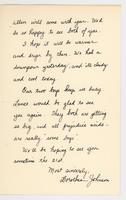 Allen will come with you. We'd
be so happy to see both of you.
I hope it will be warmer
and dryer by then. We had a
downpour yesterday and it's cloudy
and cool today.
Our two boys keep us busy.
Lance would be glad to see
you again. They both are getting
so big, and all prejudice aside -
are really "some boys".
We'll be hoping to see you
sometime the 21st.
Most sincerely
Dorothea Johnson